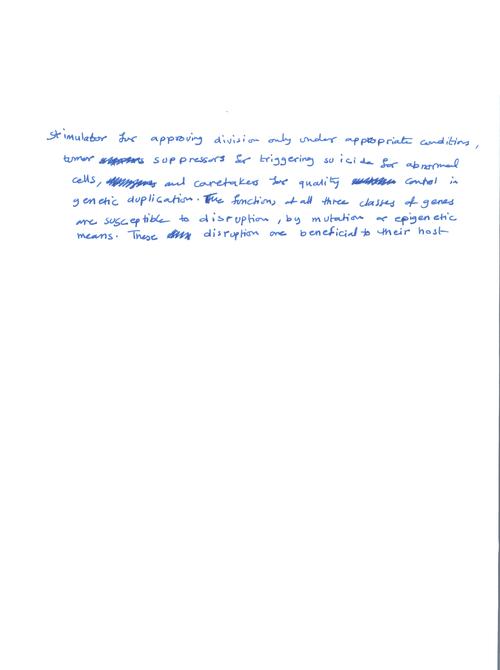 Stimulator for approving division only under appropriate conditions,
tumor suppressors for triggering suicide for abnormal
cells, and caretakers for quality control in
genetic duplication. The functions of all three classes of genes
are susceptible to disruption, by mutation or epigenetic
means. These disruption are beneficial to their host